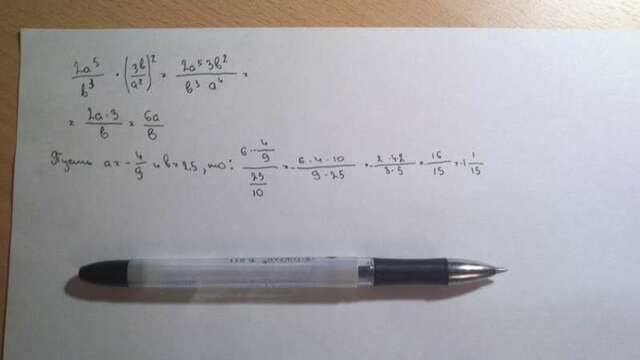 2a⁵/b³ · (3b/a²)² = 2a⁵3b²/b³ a⁴ =
= 2a·3/b = 6a/b
Пусть a = -4/9 и b = 2,5, то: 6·-4/9 / 25/10 = -6·4·10/9·25 = -2·4·2/3·5 = -16/15 = -1 1/15